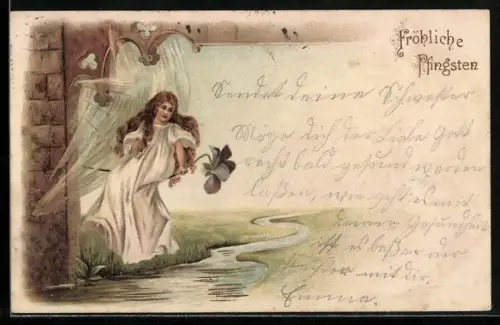 Fröhliche
Pfingsten
Sendet deine Schwester
Möge dich der Liebe Gott
recht bald gesund werden
laßen, wie geht es mit
deiner Gesundheit
ist es beßer der
mit dir.
Emma.